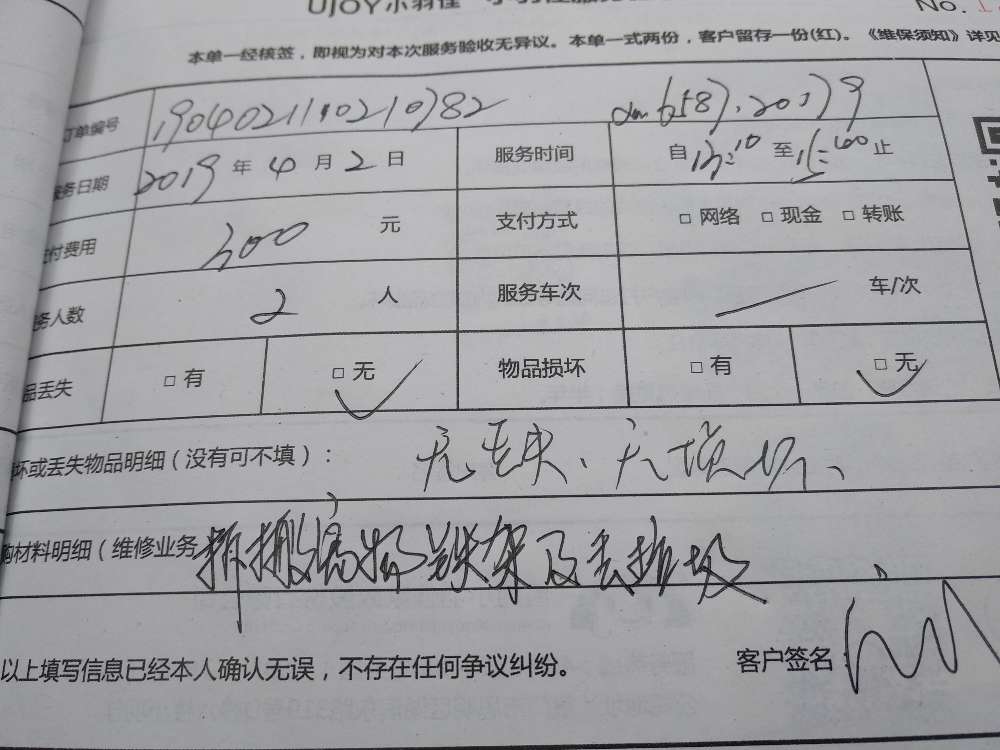 UJOY小羽佳
No. 1
本单一经核签，即视为对本次服务验收无异议。本单一式两份，客户留存一份(红)。《维保须知》详见
订单编号 190402110210782
服务日期 2019 年 4 月 2 日 服务时间 自 13:10 至 15:00 止
付费用 300 元 支付方式 □ 网络 □ 现金 □ 转账
务人数 2 人 服务车次 车/次
品丢失 □ 有 □ 无 物品损坏 □ 有 □ 无
坏或丢失物品明细（没有可不填）： 无丢失、无损坏、
购材料明细（维修业务 拆搬 铁架及丢垃圾
以上填写信息已经本人确认无误，不存在任何争议纠纷。 客户签名：